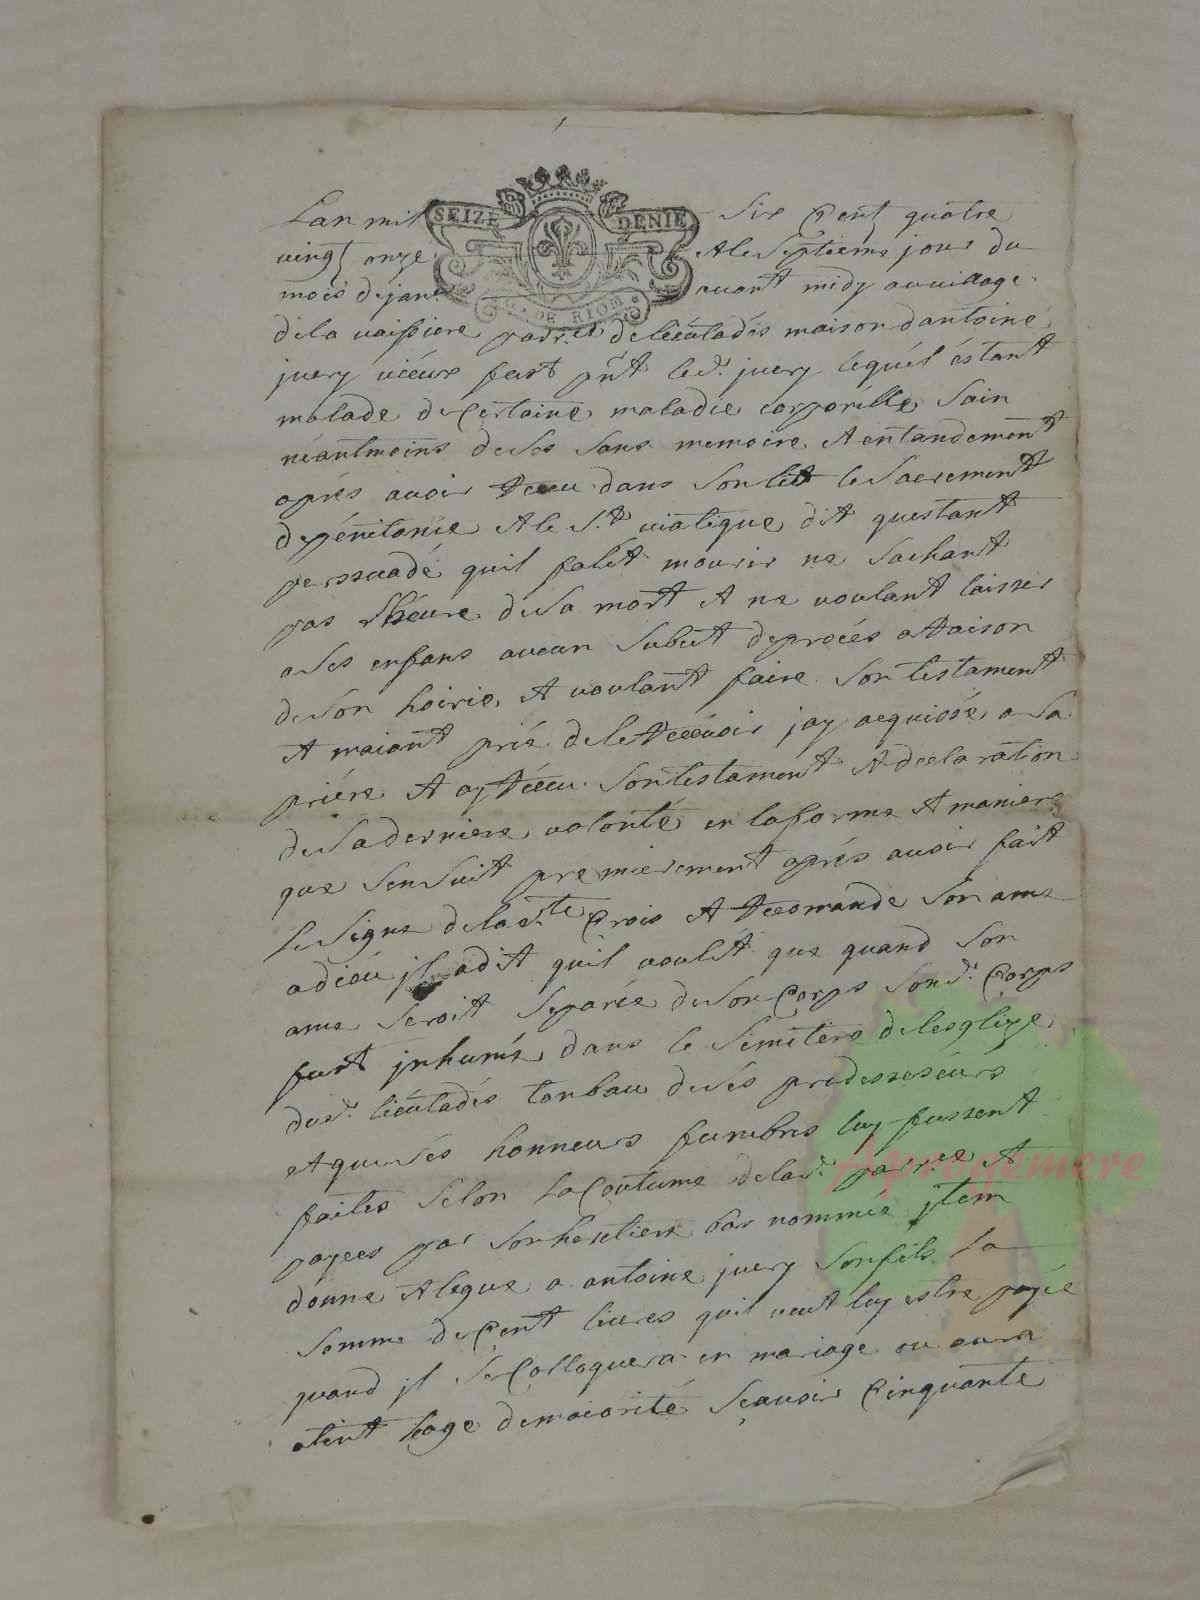 SEIZE DENIE
G. DE RIOM
Lan mil six Cent quatre
vingt onze & le septieme jour du
mois de janv avant midy au village
de la vaissiere parr.e de lieutadés maison dantoine
juery vieux feut pñt led. juery lequél éstant
malade de Certaine maladie corporélle sain
néantmoins de ses sans memoire & entandement
aprés avoir receu dans son lit le sacrement
de pénitance & le S.t viatique dit questant
perssuadé quil falét mourir ne sachant
pas lheure de sa mort & ne voulant laisser
a ses enfans aucun subiet de procés a raison
de son hoirie & voulant faire son testament
& maiant prié de le recevoir jay acquiésé a sa
priére & ay réceu son testament & declaration
de sa derniere volonté en la forme & maniere
que sensuit premierement aprés avoir fait
le signe de la s.te Crois & recomande son ame
a diéu jl a dit quil voulét que quand son
ame seroit séparée de son Corps sond. Corps
fust jnhumé dans le semitere de lesglize
dud. lieutadés tonbau de sés prédesseséurs
et que sés honneurs funebres luy fussent
faites selon la Coutume de lad. parr.e &
payees par son herétiere bas nommée jtem
donne & legue a antoine juery son fils la
somme de Cent livres quil veut luy estre payée
quand jl se Colloquera en mariage ou aura
atint lage de maiorité sçavoir Cinquante
Aprogemere